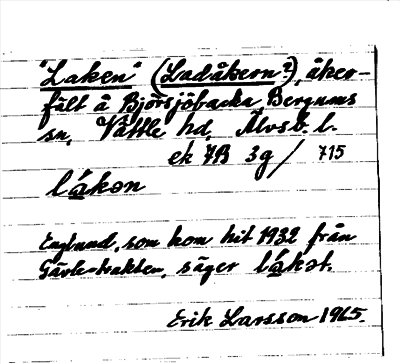 "Laken" (Ladåkern?), åker-
fält å Björsjöbacka, Bergums
sn, Vättle hd, Älvsb. l.
ek 7B 3g / 715
lákən
Englund, som kom hit 1932 från
Gävle-trakten, säger lákət.
Erik Larsson 1965.